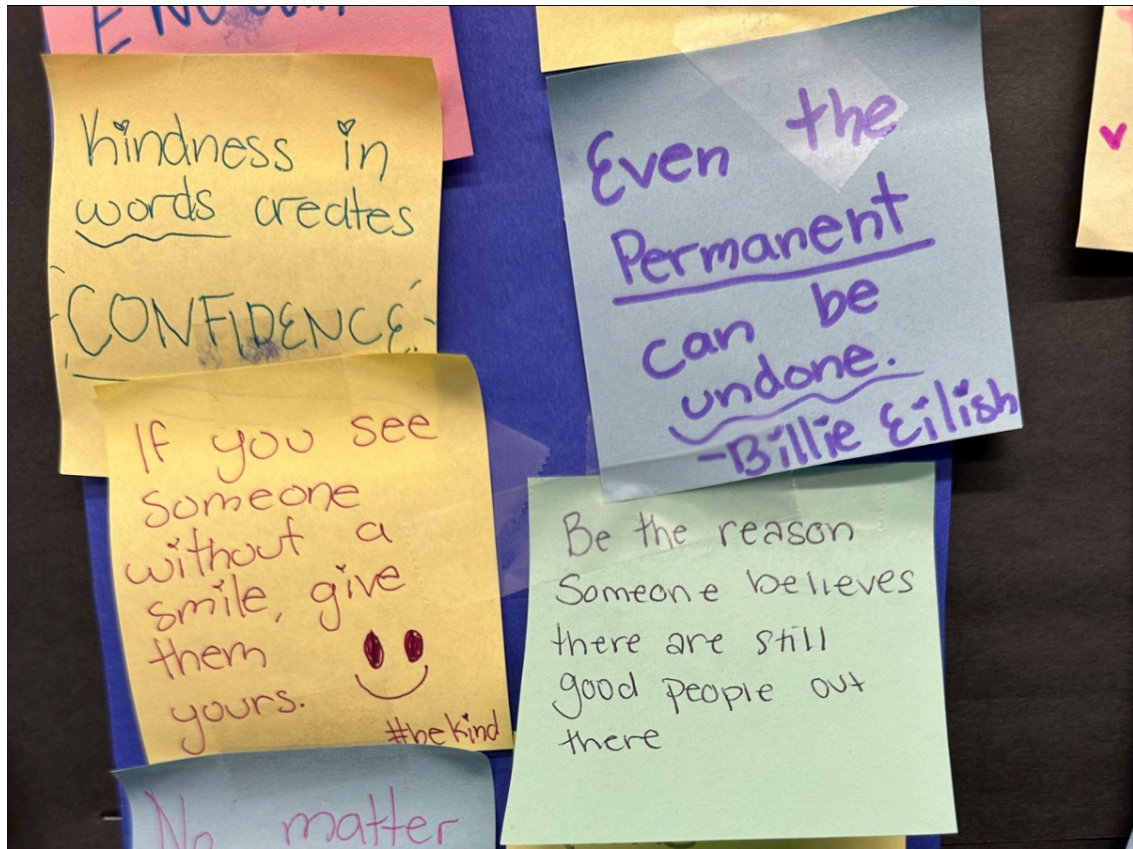 Kindness in
words creates
CONFIDENCE
If you see
someone
without a
smile, give
them
yours.
#bekind
No matter
Even the
Permanent
can be
undone.
-Billie Eilish
Be the reason
Someone believes
there are still
good people out
there